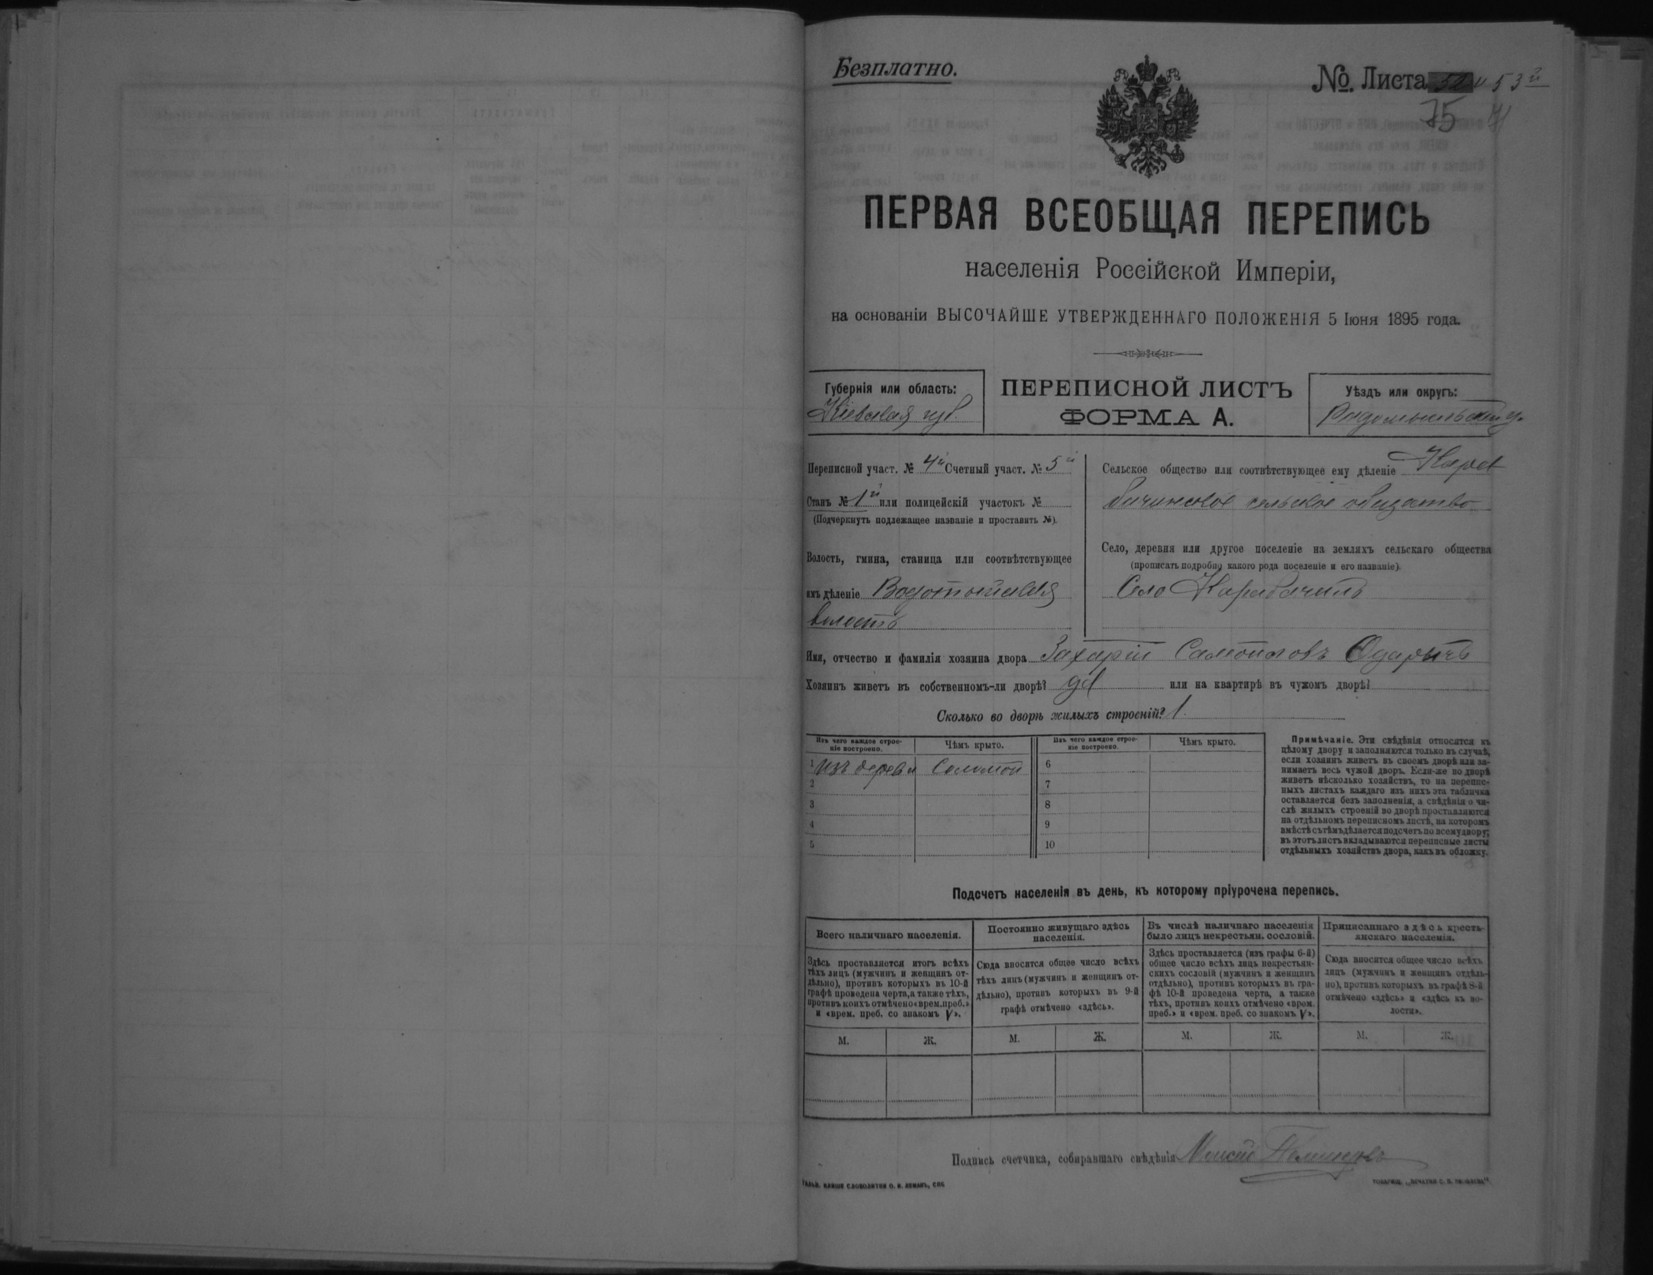 Безплатно.
№. Листа 53й
75
ПЕРВАЯ ВСЕОБЩАЯ ПЕРЕПИСЬ
населенія Россійской Имперіи,
на основаніи ВЫСОЧАЙШЕ УТВЕРЖДЕННАГО ПОЛОЖЕНІЯ 5 Іюня 1895 года.
Губернія или область:
Кіевская губ.
ПЕРЕПИСНОЙ ЛИСТЪ
ФОРМА А.
Уѣздъ или округъ:
Радомысльскій у.
Переписной участ. № 4й Счетный участ. № 5й
Станъ № 1й или полицейскій участокъ №
(Подчеркнуть подлежащее названіе и проставить №).
Волость, гмина, станица или соотвѣтствующее
имъ дѣленіе Водотыйская
волость
Сельское общество или соотвѣтствующее ему дѣленіе Кара
бачинское сельское общество
Село, деревня или другое поселеніе на земляхъ сельскаго общества
(прописать подробно, какого рода поселеніе и его названіе).
Село Карабачинъ
Имя, отчество и фамилія хозяина двора Захарій Самойловъ
Хозяинъ живетъ въ собственномъ-ли дворѣ? да или на квартирѣ въ чужомъ дворѣ?
Сколько во дворѣ жилыхъ строеній? 1
Изъ чего каждое строе-
ніе построено.
Чѣмъ крыто.
Изъ чего каждое строе-
ніе построено.
Чѣмъ крыто.
1 Изъ дерева Соломой 6
2 7
3 8
4 9
5 10
Примѣчаніе. Эти свѣдѣнія относятся къ
цѣлому двору и заполняются только въ случаѣ,
если хозяинъ живетъ въ своемъ дворѣ или за-
нимаетъ весь чужой дворъ. Если-же во дворѣ
живетъ нѣсколько хозяйствъ, то на перепис-
ныхъ листахъ каждаго изъ нихъ эта табличка
оставляется безъ заполненія, а свѣдѣнія о чи-
слѣ жилыхъ строеній во дворѣ проставляются
на отдѣльномъ переписномъ листѣ, на которомъ
вмѣстѣ съ тѣмъ дѣлается подсчетъ по всему двору;
въ этотъ листъ вкладываются переписные листы
отдѣльныхъ хозяйствъ двора, какъ въ обложку.
Подсчетъ населенія въ день, къ которому пріурочена перепись.
Всего наличнаго населенія.
Здѣсь проставляется итогъ всѣхъ
тѣхъ лицъ (мужчинъ и женщинъ от-
дѣльно), противъ которыхъ въ 10-й
графѣ проведена черта, а также тѣхъ,
противъ коихъ отмѣчено «врем. преб.»
и «врем. преб. со знакомъ V».
М. Ж.
Постоянно живущаго здѣсь
населенія.
Сюда вносится общее число всѣхъ
тѣхъ лицъ (мужчинъ и женщинъ от-
дѣльно), противъ которыхъ въ 9-й
графѣ отмѣчено «здѣсь».
М. Ж.
Въ числѣ наличнаго населенія
было лицъ некрестьян. сословій.
Здѣсь проставляется (изъ графы 6-й)
общее число всѣхъ лицъ некрестьян-
скихъ сословій (мужчинъ и женщинъ
отдѣльно), противъ которыхъ въ гра-
фѣ 10-й проведена черта, а также
тѣхъ, противъ коихъ отмѣчено «врем.
преб.» и «врем. преб. со знакомъ V».
М. Ж.
Приписаннаго здѣсь кресть-
янскаго населенія.
Сюда вносится общее число всѣхъ
лицъ (мужчинъ и женщинъ отдѣль-
но), противъ которыхъ въ графѣ 8-й
отмѣчено «здѣсь» и «здѣсь въ во-
лости».
М. Ж.
Подпись счетчика, собиравшаго свѣдѣнія Моисей